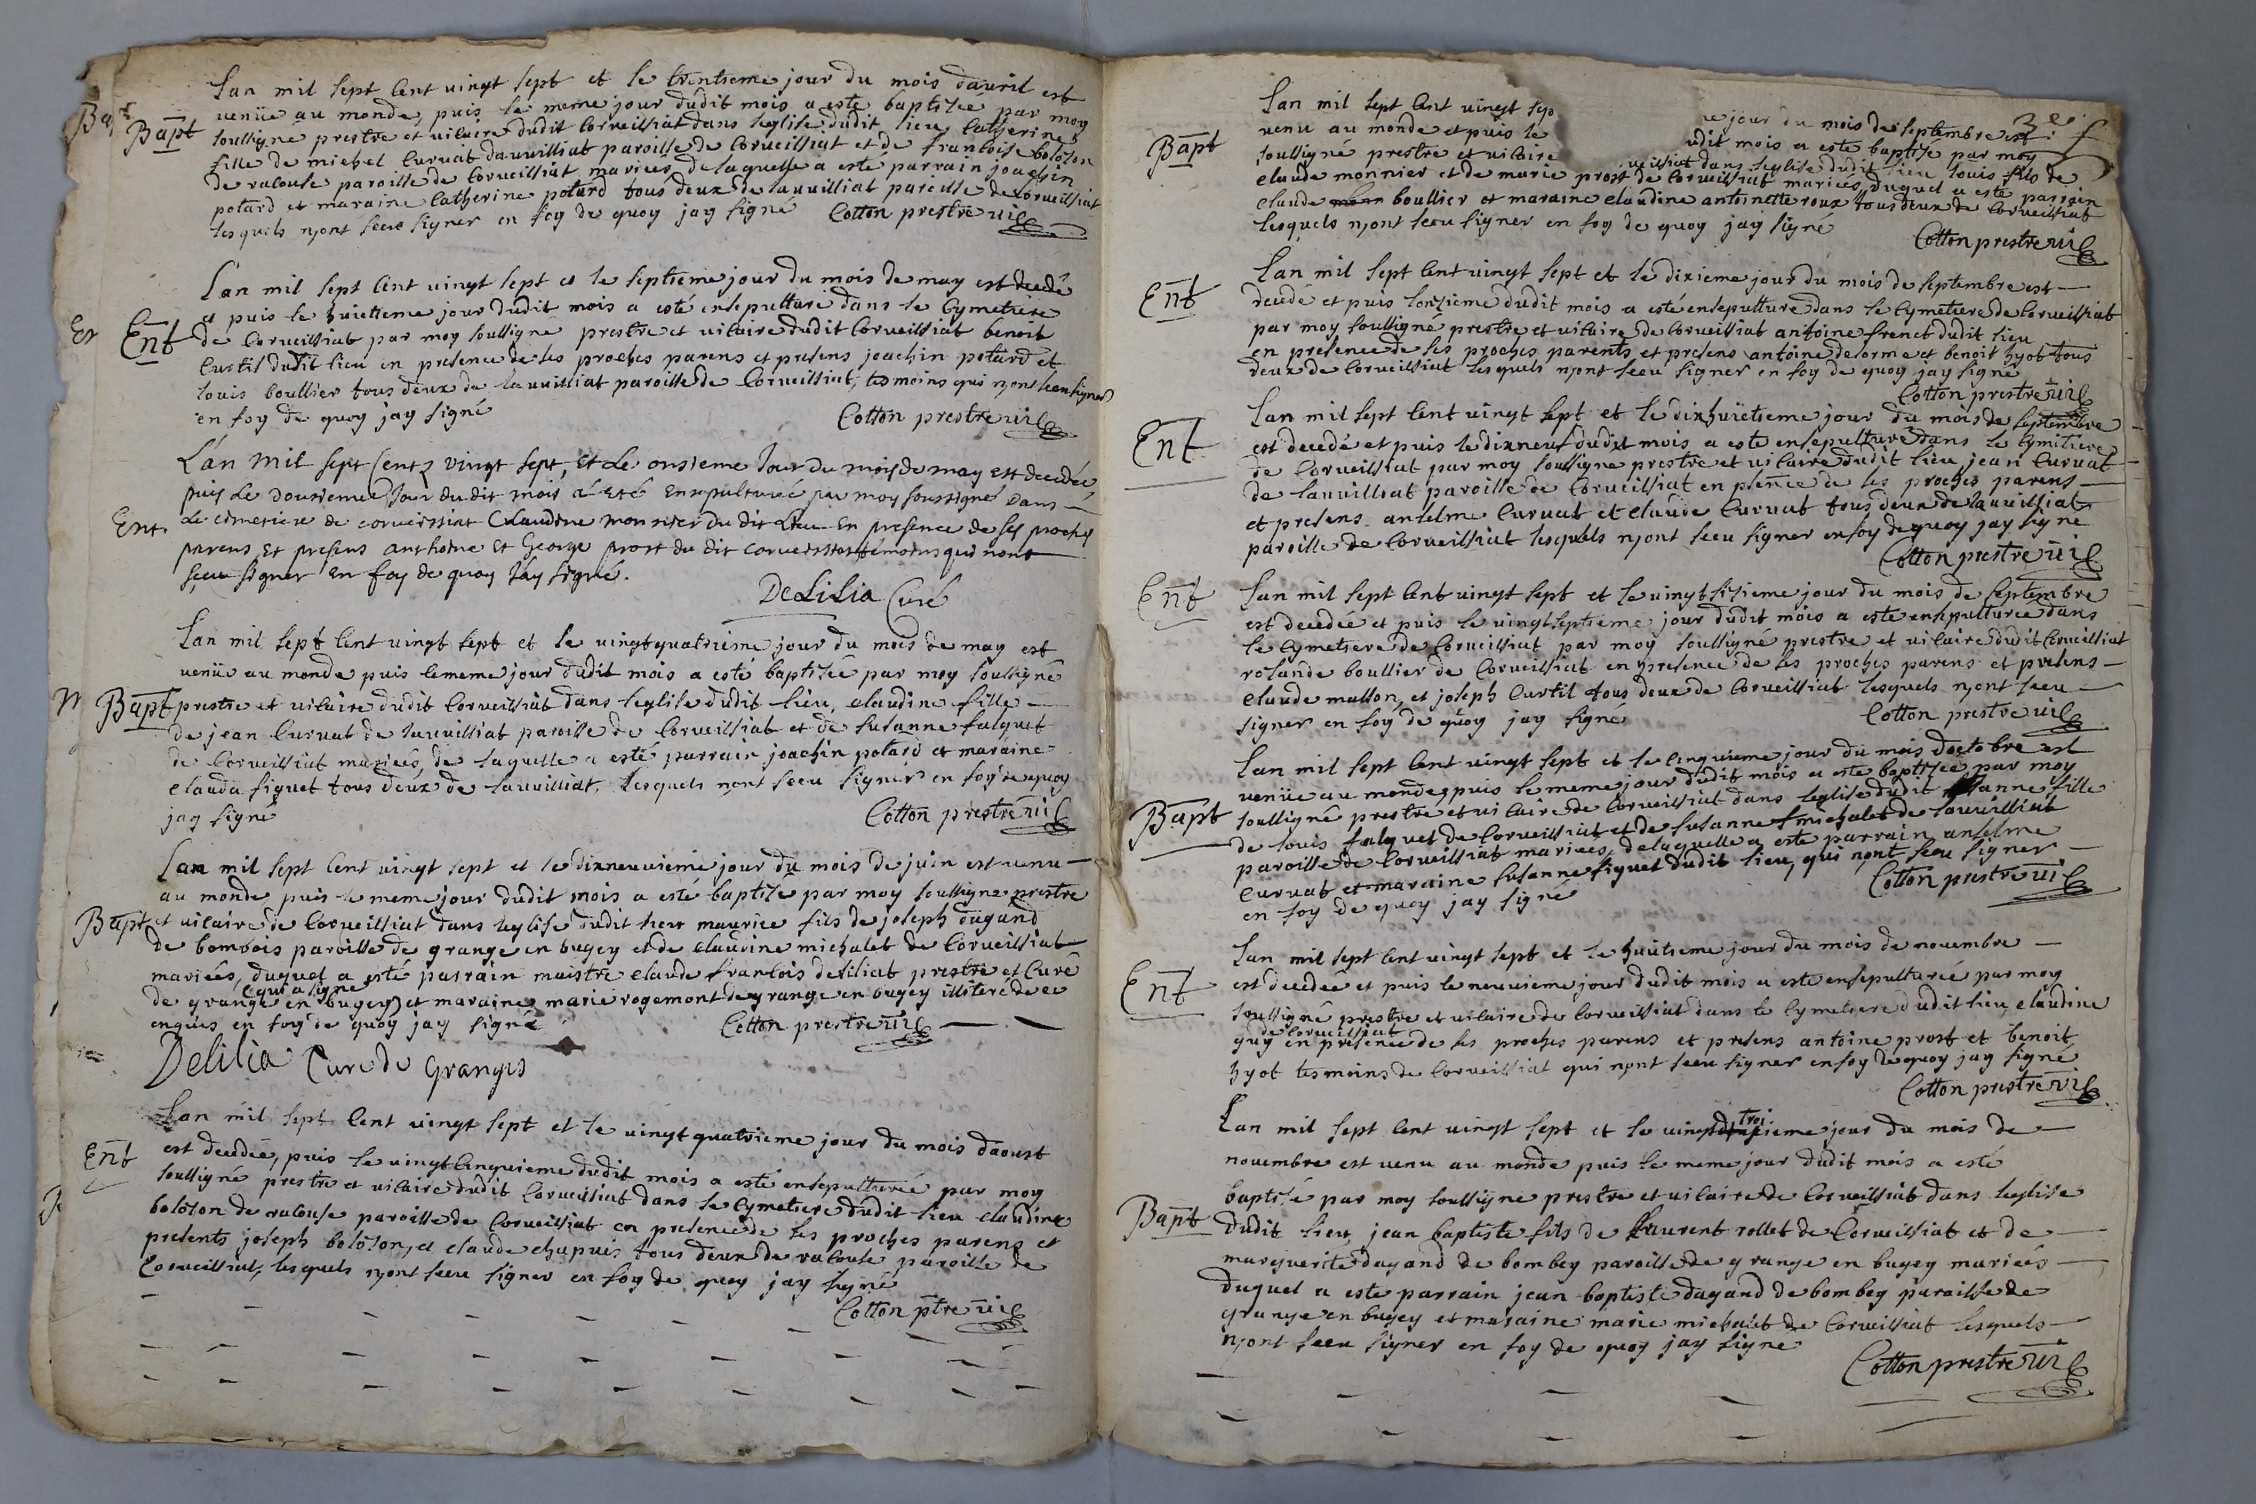 Bapt
Lan mil sept cent vingt sept et le trentieme jour du mois davril est
venüe au monde, puis le meme jour dudit mois a esté baptisée par moy
soussigné prestre et vicaire dudit Corveissiat dans leglise dudit lieu catherine
fille de michel Curvat dauvilliat paroisse de Corveissiat et de francoise bolozon
de racouse paroisse de Corveissiat mariées de laquelle a esté parrain joachin
potard et maraine Catherine potard tous deux de lauvilliat paroisse de Corveissiat
lesquels nont sceu signer en foy de quoy jay signé Cotton prestre vic
Ent
Lan mil sept cent vingt sept et le septieme jour du mois de may est decedé
et puis le huictieme jour dudit mois a esté ensepulturé dans le Cymetiere
de Corveissiat par moy soussigne prestre et vicaire dudit Corveissiat benoit
Curtil dudit lieu en presence de ses proches parens et presens joachin potard et
louis boullier tous deux de lauvilliat paroisse de Corveissiat, tesmoins qui nont sceu signer
en foy de quoy jay signé Cotton prestre vic
Ent.
Lan mil sept Cents vingt sept, et Le onsieme Jour du mois de may est decedée,
puis Le dousieme Jour du dit mois a Eté Ensepulturée par moy soussigné dans
Le cimetiere de corveissiat Claudine monnier du dit Lieu En presence de ses proches
parens Et presens anthoine Et George prost du dit corveissiat témoins qui nont
sceu signer En foy de quoy Jay signé.
DeLiLia Curé
Bapt
Lan mil sept Cent vingt sept et le vingtquatrieme jour du mois de may est
venüe au monde puis le meme jour dudit mois a esté baptisée par moy soussigné
prestre et vicaire dudit Corveissiat dans leglise dudit lieu, claudine fille
de jean Curvat de lauvilliat paroisse de Corveissiat et de susanne falquet
de Corveissiat mariées, de laquelle a esté parrain joachin potard et maraine
clauda siquet tous deux de lauvilliat, lesquels nont sceu signer en foy de quoy
jay signé Cotton prestre vic
Bapt
Lan mil sept Cent vingt sept et le dixneuvieme jour du mois de juin est venu
au monde puis le meme jour dudit mois a esté baptisé par moy soussigne prestre
et vicaire de Corveissiat dans leglise dudit lieu maurice fils de joseph dugand
de bombois paroisse de grange en bugey et de claudine michalet de Corveissiat
mariées, duquel a esté parrain maistre claude francois deliliat prestre et Curé
de grange en bugey (qui a signé) et maraine marie rogemont de grange en bugey illiteré de ce
enquis en foy de quoy jay signé Cotton prestre vic
Delilia Curé de Granges
Ent
Lan mil sept Cent vingt sept et le vingt quatrieme jour du mois daoust
est decedée, puis le vingt Cinquieme dudit mois a esté ensepulturée par moy
soussigné prestre et vicaire dudit Corveissiat dans le Cymetiere dudit lieu claudine
bolozon de racouse paroisse de Corveissiat en presence de ses proches parens et
presents joseph bolozon, et claude chapuis tous deux de racouse paroisse de
Corveissiat, lesquels nont sceu signer en foy de quoy jay signé
Cotton ptre vic
Bapt
Lan mil sept Cent vingt sep ... jour du mois de septembre est
venu au monde et puis le ... udit mois a esté baptisé par moy
soussigné prestre et vicaire ... dans leglise dudit lieu louis fils de
claude monnier et de marie prost de Corveissiat mariées, duquel a esté parrain
claude boullier et maraine claudine antoinette roux tous deux de Corveissiat
lesquels nont sceu signer en foy de quoy jay signé
Cotton prestre vic
Ent
Lan mil sept Cent vingt sept et le dixieme jour du mois de septembre est
decedé et puis lonsieme dudit mois a esté ensepulturé dans le Cymetiere de Corveissiat
par moy soussigné prestre et vicaire de Corveissiat antoine frenet dudit lieu
en presence de ses proches parents, et presens antoine delorme et benoit hyot tous
deux de Corveissiat lesquels nont sceu signer en foy de quoy jay signé
Cotton prestre vic
Ent
Lan mil sept Cent vingt sept et le dixhuictieme jour du mois de septembre
est decedé et puis le dixneuf dudit mois a esté ensepulturé dans le Cymitiere
de Corveissiat par moy soussigne prestre et vicaire dudit lieu jean Curvat
de lauvilliat paroisse de Corveissiat en presence de ses proches parens
et presens anselme Curvat et claude Curvat tous deux de lauvilliat
paroisse de Corveissiat lesquels nont sceu signer en foy de quoy jay signé
Cotton prestre vic
Ent
Lan mil sept Cent vingt sept et le vingtsisieme jour du mois de septembre
est decedée et puis le vingtseptieme jour dudit mois a esté ensepulturée dans
le Cymetiere de Corveissiat par moy soussigné prestre et vicaire dudit Corveissiat
rolande boullier de Corveissiat en presence de ses proches parens et presens
claude mallon, et joseph Curtil tous deux de Corveissiat lesquels nont sceu
signer en foy de quoy jay signé Cotton prestre vic
Bapt
Lan mil sept Cent vingt sept et le Cinquieme jour du mois doctobre est
venüe au monde, puis le meme jour dudit mois a esté baptisée par moy
soussigné prestre et vicaire de Corveissiat dans leglise dudit anne fille
de louis falquet de Corveissiat et de susanne michalet de lauvilliat
paroisse de Corveissiat mariées, de laquelle a esté parrain anselme
Curvat et maraine susanne siquet dudit lieu, qui nont sceu signer
en foy de quoy jay signé Cotton prestre vic
Ent
Lan mil sept Cent vingt sept et le huitieme jour du mois de novembre
est decedée et puis le neuvieme jour dudit mois a esté ensepulturée par moy
soussigné prestre et vicaire de Corveissiat dans le Cymetiere dudit lieu, claudine
guy de Corveissiat en presence de ses proches parens et presens antoine prost et benoit
hyot tesmoins de Corveissiat qui nont sceu signer en foy de quoy jay signé
Cotton prestre vic
Bapt
Lan mil sept Cent vingt sept et le vingt troisieme jour du mois de
novembre est venu au monde puis le meme jour dudit mois a esté
baptisé par moy soussigne prestre et vicaire de Corveissiat dans leglise
dudit lieu, jean baptiste fils de laurent rollet de Corveissiat et de
marguerite dugand de bombey paroisse de grange en bugey mariées
duquel a este parrain jean baptiste dugand de bombey paroisse de
grange en bugey et maraine marie michalet de Corveissiat lesquels
nont sceu signer en foy de quoy jay signé
Cotton prestre vic